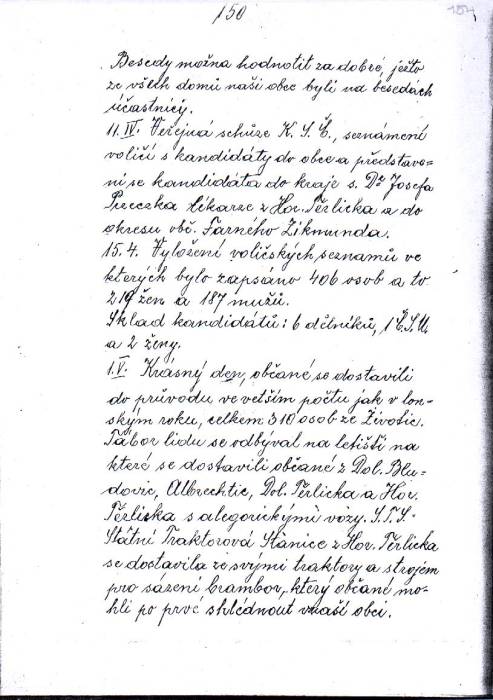 150
Besedy možna hodnotit za dobré, ježto
ze všech domů naši obce byli na besedách
účastníci.
11.IV. Veřejná schůze K.S.Č., seznámení
voličí s kandidáty do obce a představe-
ni se kandidáta do kraje s. Dr Josefa
lékarze z Hor. Těrlicka a do
okresu obč. Farného Zikmunda.
15.4. Vyložení voličských seznamů ve
kterých bylo zapsáno 406 osob a to
219 žen a 187 mužů.
Sklad kandidátů: 6 dělníků, 1 Č.S.M.
a 2 ženy.
1.V. Krásný den, občané se dostavili
do průvodu ve vetším počtu jak v lon-
ským roku, celkem 310 osob ze Životic.
Tábor lidu se odbýval na letišti na
které se dostavili občané z Dol. Blu-
dovic, Albrechtic, Dol. Těrlicka a Hor.
Těrlicka s alegorickými vozy. S.T.S.-
Státní Traktorová Stanice z Hor. Těrlicka
se dostavila ze svými traktory a strojem
pro sázení brambor, který občané mo-
hli po prvé shlédnout v naší obci.